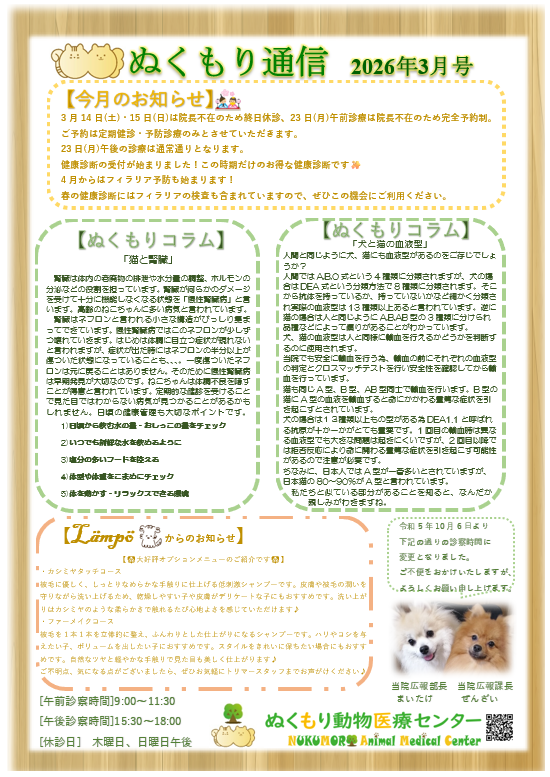 ぬくもり通信 2026年3月号
【今月のお知らせ】
3月14日(土)・15日(日)は院長不在のため終日休診、23日(月)午前診療は院長不在のため完全予約制。
ご予約は定期健診・予防診療のみとさせていただきます。
23日(月)午後の診療は通常通りとなります。
健康診断の受付が始まりました！この時期だけのお得な健康診断です
4月からはフィラリア予防も始まります！
春の健康診断にはフィラリアの検査も含まれていますので、ぜひこの機会にご利用ください。
【ぬくもりコラム】
「猫と腎臓」
腎臓は体内の老廃物の排泄や水分量の調整、ホルモンの
分泌などの役割を担っています。腎臓が何らかのダメージ
を受けて十分に機能しなくなる状態を「慢性腎臓病」と言
います。高齢のねこちゃんに多い病気と言われています。
腎臓はネフロンと言われる小さな構造がびっしり集ま
ってできています。慢性腎臓病ではこのネフロンが少しず
つ壊れていきます。はじめは体調に目立つ症状が現れない
と言われますが、症状が出た時にはネフロンの半分以上が
傷ついた状態になっていることも、、、、一度傷ついたネフ
ロンは元に戻ることはありません。そのために慢性腎臓病
は早期発見が大切なのです。ねこちゃんは体調不良を隠す
ことが得意と言われています。定期的な健診を受けること
で見た目ではわからない病気が見つかることがあるかも
しれません。日頃の健康管理も大切なポイントです。
1)日頃から飲む水の量・おしっこの量をチェック
2)いつでも新鮮な水を飲めるように
3)塩分の多いフードを控える
4)体型や体重をこまめにチェック
5)体を動かす・リラックスできる環境
【ぬくもりコラム】
「犬と猫の血液型」
人間と同じように犬、猫にも血液型があるのをご存じでしょ
うか？
人間ではA,B,O式という4種類に分類されますが、犬の場
合はDEA式という分類方法で8種類に分類されます。そこ
から抗体を持っているか、持っていないかなど細かく分類さ
れ実際の血液型は13種類以上あると言われています。逆に
猫の場合は人と同じようにA,B,AB型の3種類に分けられ
品種などによって偏りがあることがわかっています。
犬、猫の血液型は人と同様に輸血を行えるかどうかを判断す
るのに使用されます。
当院でも安全に輸血を行う為、輸血の前にそれぞれの血液型
の判定とクロスマッチテストを行い安全性を確認してから輸
血を行っています。
猫も同じA型、B型、AB型同士で輸血を行います。B型の
猫にA型の血液を輸血すると命にかかわる重篤な症状を引
き起こすとされています。
犬の場合は13種類以上もの型がある為DEA1.1と呼ばれ
る抗原が＋か－かがとても重要です。1回目の輸血時は異な
る血液型でも大きな問題は起きにくいですが、2回目以降で
は拒否反応により命に関わる重篤な症状を引き起こす可能性
があるので注意が必要です。
ちなみに、日本人ではA型が一番多いとされていますが、
日本猫の80～90％がA型と言われています。
私たちと似ている部分があることを知ると、なんだか
親しみがわきますね。
【Lämpö からのお知らせ】
【大好評オプションメニューのご紹介です】
・カシミヤタッチコース
被毛に優しく、しっとりなめらかな手触りに仕上げる低刺激シャンプーです。皮膚や被毛の潤いを
守りながら洗い上げるため、乾燥しやすい子や皮膚がデリケートな子にもおすすめです。洗い上が
りはカシミヤのような柔らかさで触れるたび心地よさを感じていただけます♪
・ファーメイクコース
被毛を1本1本を立体的に整え、ふんわりとした仕上がりになるシャンプーです。ハリやコシを与
えたい子、ボリュームを出したい子におすすめです。スタイルをきれいに保ちたい場合にもおすす
めです。自然なツヤと軽やかな手触りで見た目も美しく仕上がります♪
ご不明点、気になる点がございましたら、ぜひお気軽にトリマースタッフまでお声がけください♪
令和5年10月6日より
下記の通りの診察時間に
変更となりました。
ご不便をおかけいたしますが、
よろしくお願い申し上げます。
当院広報部長 当院広報課長
まいたけ ぜんざい
[午前診察時間]9:00～11:30
[午後診察時間]15:30～18:00
[休診日] 木曜日、日曜日午後
ぬくもり動物医療センター
NUKUMORI Animal Medical Center